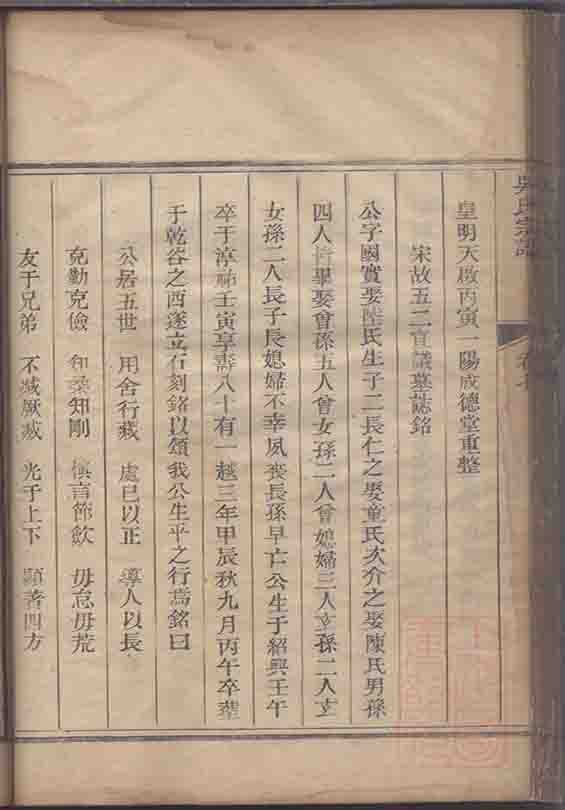 吳氏宗譜
卷七
皇明天啟丙寅一陽成德堂重整
宋故五二宣議墓誌銘
公字國實娶陸氏生子二長仁之娶童氏次介之娶陳氏男孫
四人皆畢娶曾孫五人曾女孫二人曾媳婦三人玄孫二人玄
女孫二人長子長媳婦不幸夙喪長孫早亡公生于紹興壬午
卒于淳祐壬寅享壽八十有一越三年甲辰秋九月丙午卒塟
于乾谷之西遂立石刻銘以頌我公生平之行焉銘曰
公居五世 用舍行藏 處已以正 導人以長
克勤克儉 知柔知剛 慎言節飲 毋怠毋荒
友于兄弟 不減厥臧 光于上下 顯著四方